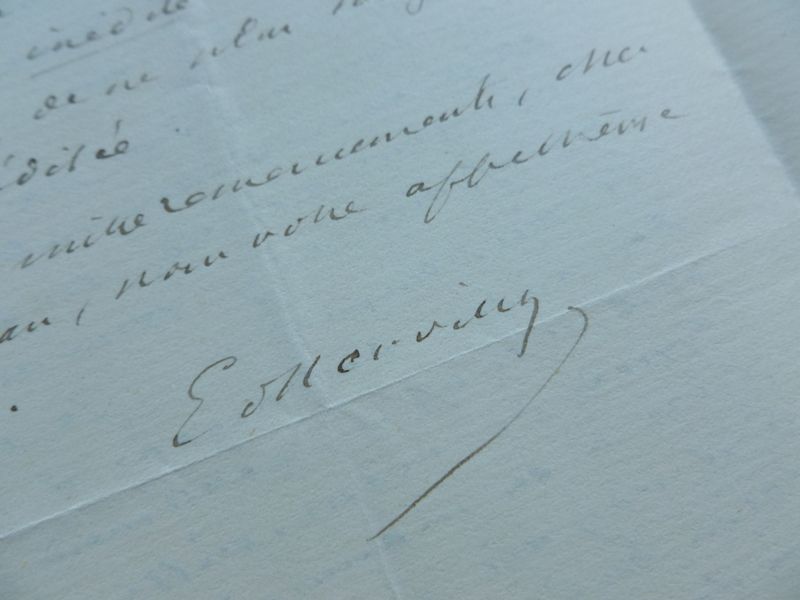 inédite
de ne plus
édité
mille remerciements, cher
au, pour votre affectueuse
Ed Hervilly